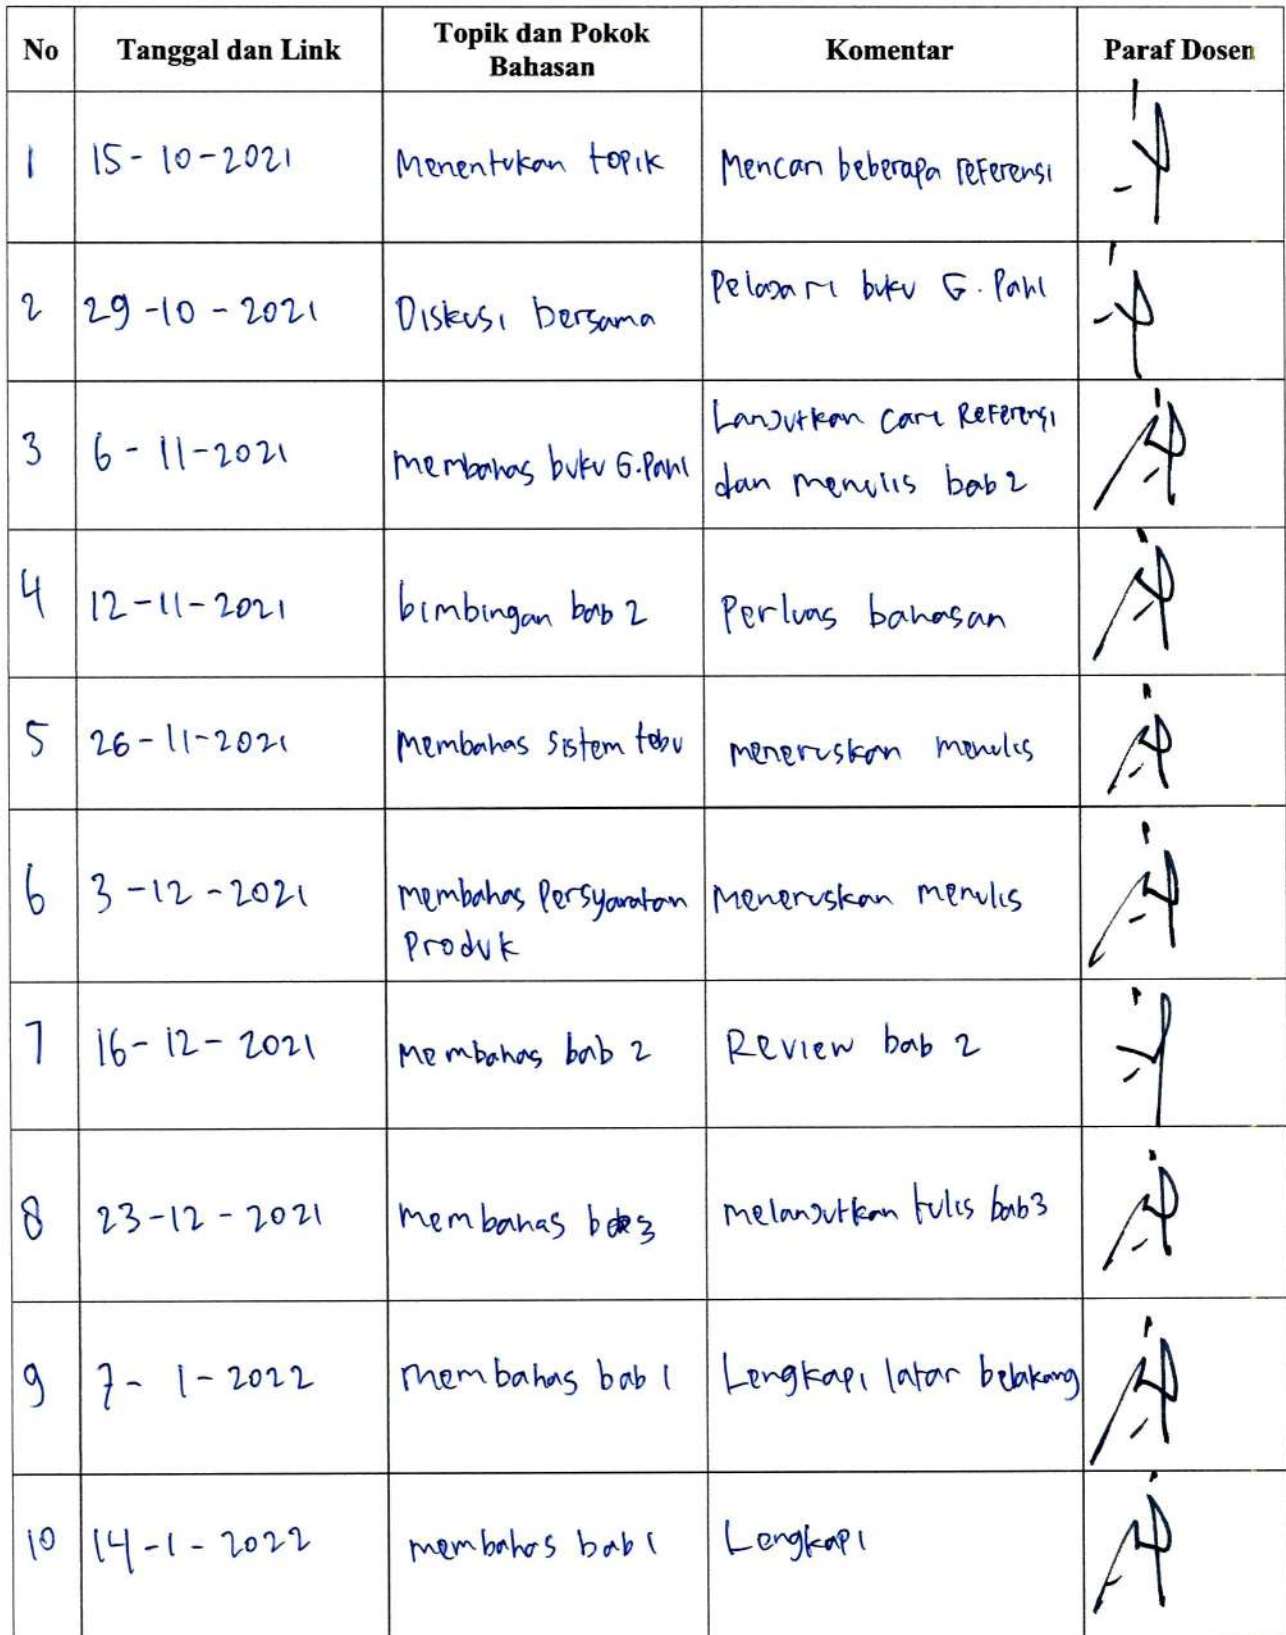 No Tanggal dan Link Topik dan Pokok Bahasan Komentar Paraf Dosen
1 15-10-2021 Menentukan topik Mencari beberapa referensi
2 29-10-2021 Diskusi bersama Pelajari buku G. Pahl
3 6-11-2021 membahas buku G.Pahl Lanjutkan cari Referensi
dan menulis bab 2
4 12-11-2021 bimbingan bab 2 Perluas bahasan
5 26-11-2021 membahas sistem tebu meneruskan menulis
6 3-12-2021 membahas Persyaratan Meneruskan menulis
Produk
7 16-12-2021 Membahas bab 2 Review bab 2
8 23-12-2021 membahas 3 melanjutkan tulis bab3
9 7-1-2022 membahas bab 1 Lengkapi latar belakang
10 14-1-2022 membahas bab 1 Lengkapi